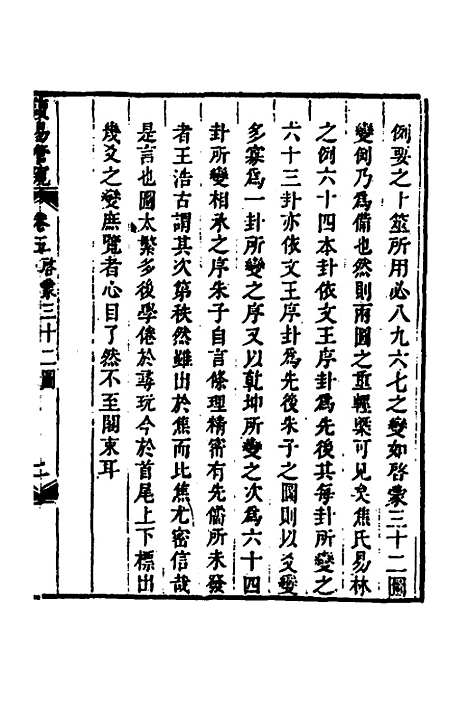 例要之卜筮所用必八九六七之變如啓蒙三十二圖
變例乃爲備也然則兩圖之重輕槩可見矣焦氏易林
之例六十四本卦依文王序卦爲先後其每卦所變之
六十三卦亦依文王序卦爲先後朱子之圖則以爻變
多寡爲一卦所變之序又以乾坤所變之次爲六十四
卦所變相承之序朱子自言條理精宻有先儒所未發
者王浩古謂其次第秩然雖出於焦而比焦尤密信哉
是言也圖太繁多後學倦於尋玩今於首尾上下標出
幾爻之變庶覽者心目了然不至閣束耳
讀易管窺 卷五 啓蒙三十二圖